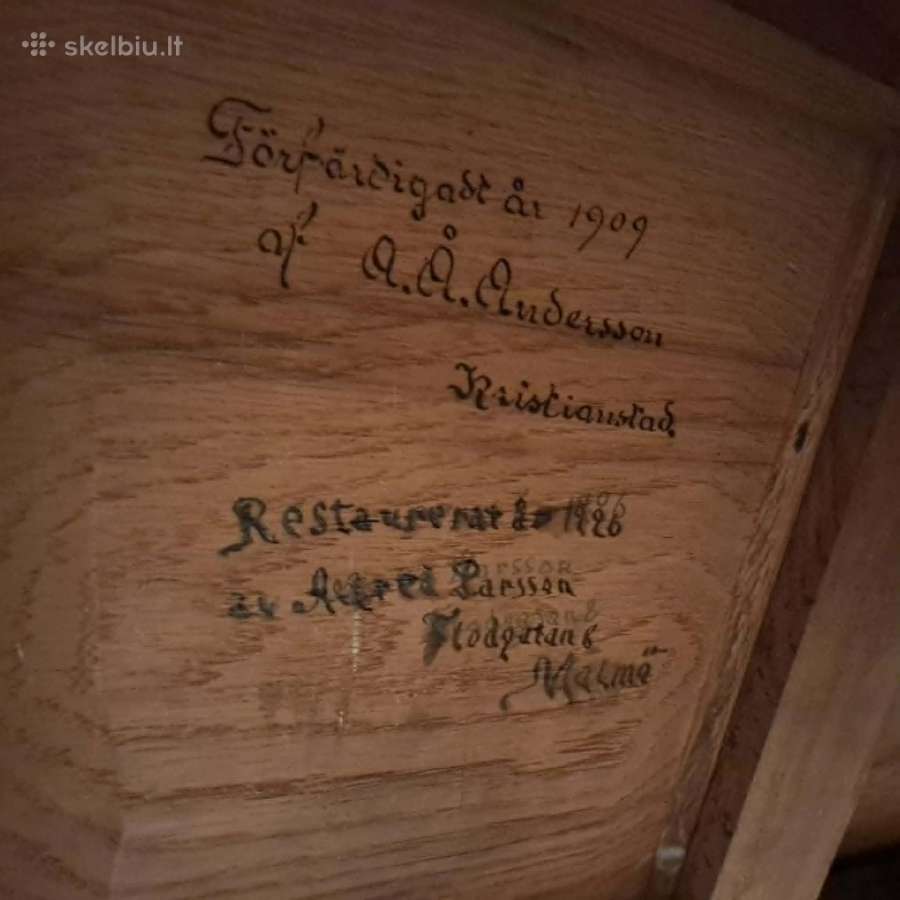 skelbiu.lt
Förfärdigadt år 1909
af A. Å. Andersson
Kristianstad.
Restaurerat år
av Alfred Larsson
Flodgatan 6
Malmö